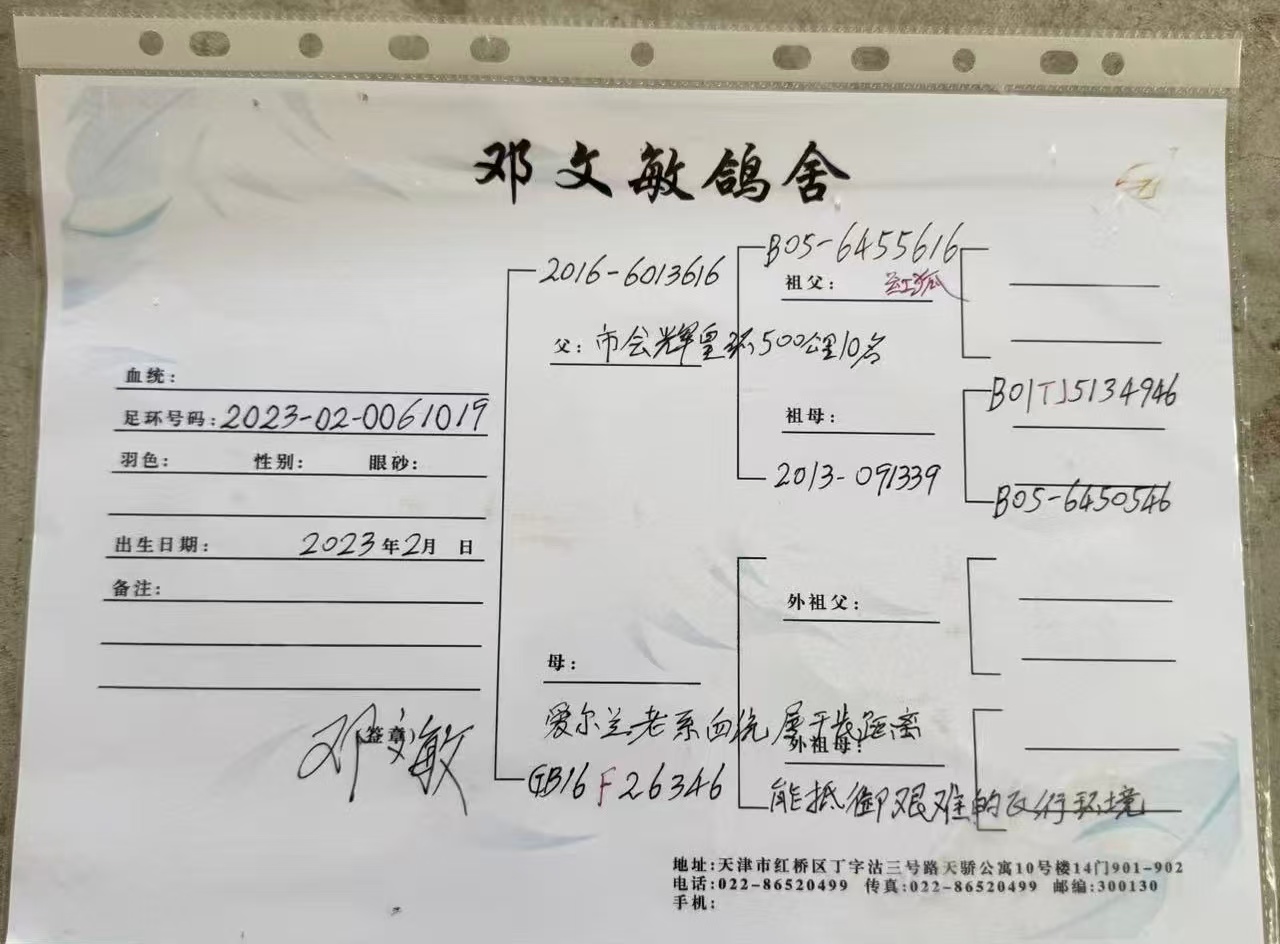 邓文敏鸽舍
血统:
足环号码: 2023-02-0061019
羽色: 性别: 眼砂:
出生日期: 2023年2月 日
备注:
(签章)
邓文敏
2016-6013616
父: 市会辉皇环500公里10名
母:
爱尔兰老系血统 属于长距离
能抵御艰难的飞行环境
GB16 F 26346
B05-6455616
祖父:
祖母:
2013-091339
外祖父:
外祖母:
B01TJ5134946
B05-6450546
地址:天津市红桥区丁字沽三号路天骄公寓10号楼14门901-902
电话:022-86520499 传真:022-86520499 邮编:300130
手机: